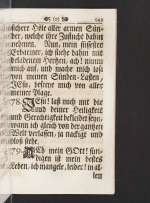 sichere Höle aller armen Sün-
der, welche ihre Zuflucht dahin
nehmen. Nun, mein süssester
Erbarmer, ich fliehe dahin mit
beladenem Hertzen, ach! nimm
mich auf, und mache mich loß
von meinen Sünden-Lasten,
befreye mich von aller
meiner Plage.
78. JEsu! laß mich mit der
Hand deiner Heiligkeit
und Gerechtigkeit bekleidet seyn,
wann ich gleich von der gantzen
Welt verlassen, ja nackigt und
bloß stehe.
79. Ach mein GOtt! sün-
digen ist mein bestes
Leben, ich mangele, leider! in al-
lem